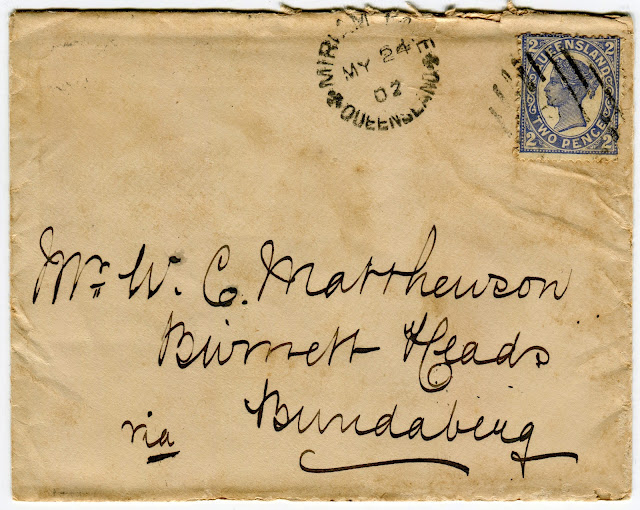 MY 24
02
QUEENSLAND
2 QUEENSLAND 2
2 TWO PENCE 2
Mr W. C. Matthewson
Burnett Heads
via Bundaberg